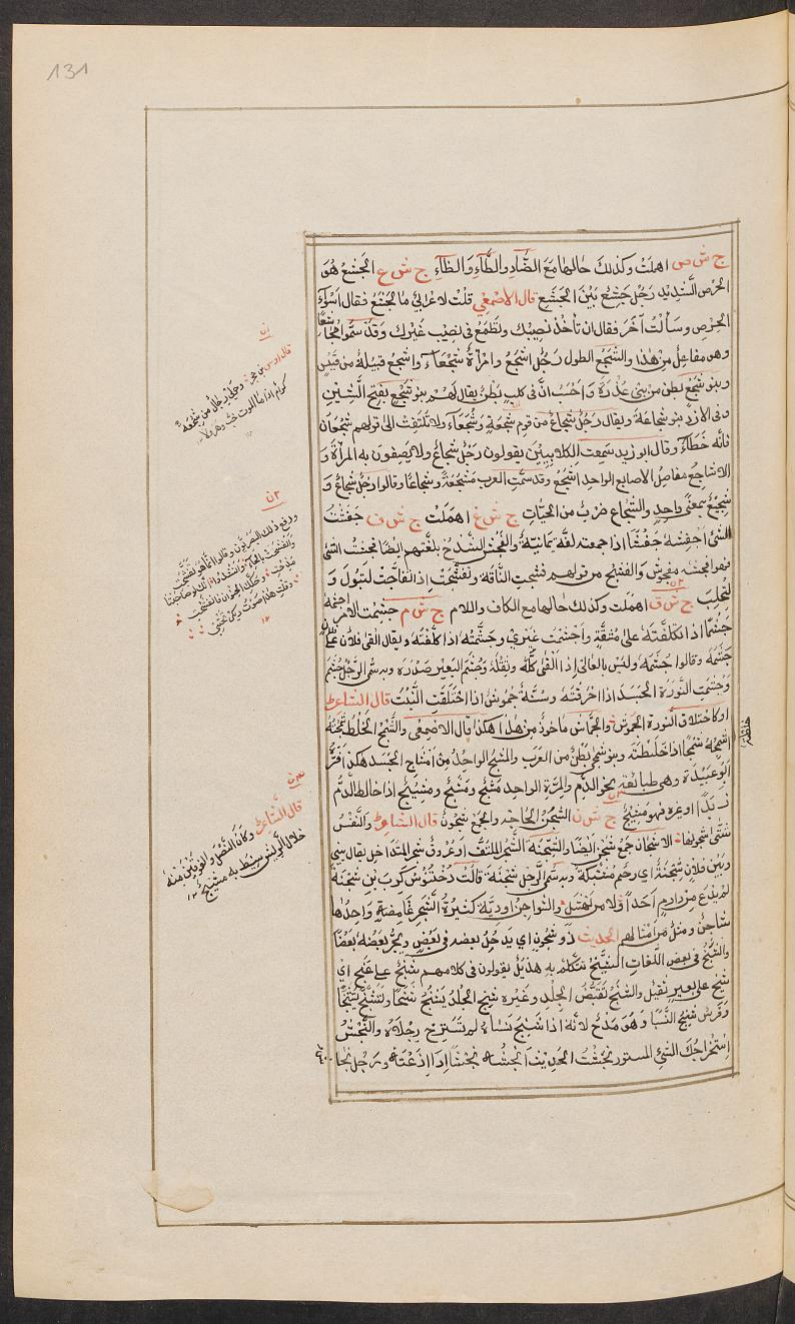 131
ج ش ص اهملت وكذلك حالهما مع الضّاد والطّآء والظآء ج ش ع الجشع هُوَ
الحرص الشديد رجل جشع بيّن الجشع قال الاصمعى قلت لاعرابى ما الجشع فقال اسوَء
الحرص وسألت آخر فقال ان تأخذ نصيبك وتطمع فى نصيب غيرك وقد سمّوا مجاشعًا
وهو مفاعل من هذا والشجع الطول رجل اشجع وامرأة شجعآء واشجع قبيلة من قيس
وبنو شجع بطن من بنى عذرة واحسب انّ فى كلب بطن يقال لهم بنو شجع بفتح الشين
وفى الازد بنو شجاعة ويقال رجل شجاع من قوم شجعة وشجعآء ولا تلتفت الى قولهم شجعان
فانّه خطآء وقال ابو زيد سمعت الكلابيين يقولون رجل شجاع ولا يصفون به المرأة و
الاشاجع مفاصل الاصابع الواحد اشجع وقد سمّت العرب مشجعة وشجاعًا وقالوا رجل شجاع و
شجيع بمعنى واحد والشجاع ضرب من الحيّات ج ش غ اهملت ج ش ف جفشت
الشئ اجفشه جفشًا اذا جمعته لغة يمانية والفجش الشدخ بلغتهم ايضًا فجشت الشئ
فهو مفجوش والفشج من قولهم فشجت الناقة وتفشّجت اذا تفاجّت لتبول و
لتحلب ج ش ق اهملت وكذلك حالهما مع الكاف واللام ج ش م جشمت الامر اجشمه
جشمًا اذا تكلّفته على مشقّة واجشمت غيرى وجشّمته اذا كلّفته ويقال القى فلان علىّ
جشمه وقالوا جشمه وليس بالعالى اذا القى كلّه وثقله وجشم البعير صدره وبه سمّى الرجل جشم
وجمشت النورة الجسد اذا احرقته وسنة جموش اذا احتلقت النبت قال الشاعر
او كاحتلاق النورة الجموش والجمّاش مأخوذ من هذا هكذا قال الاصمعى والشمج الخلط شمجته
اشمجه شمجًا اذا خلطته وبنو شمج بطن من العرب والمشج الواحد من امشاج الجسد هكذا فسّره
ابو عبيدة وهى طبائعه نحو الدم والمرّة الواحد مشج ومشج ومشيج اذا خالط الدّم
زبدًا او غيره فهو مشيج ج ش ن الشجن الحاجة والجمع شجون قال الشاعر والنفس
شتّى شجونها الاشجان جمع شجن ايضًا والشجنة الشجر الملتف او عروق شجر المتداخل يقال بينى
وبين فلان شجنة اى رحم مشتبكة وبه سمّى الرجل شجنة قالت دختنوس كرب بن شجنة
لم يدع من دارم احدًا فلا من نهشل والشواجن اودية كثيرة الشجر غامضة واحدها
شاجن ومثل من امثالهم الحديث ذو شجون اى يدخل بعضه فى بعض ويجرّ بعضه بعضًا
والشنج فى بعض اللغات الشيخ تتكلّم به هذيل يقولون فى كلامهم شنج على غنج اى
شيخ على بعير ثقيل والشنج تقبّض الجلد وغيره شنج الجلد يشنج شنجًا وتشنّج تشنّجًا
وفرس شنج النسا وهو مدح لانّه اذا شنج نساه لم تسترخ رجلاه والنجش
استخراجك الشئ المستور نجشت الحديث انجشه نجشًا اذا اذعته ورجل نجا
خلطته
قال اوس بن حجر
قال الشاعر وكان النصل والفوقين منه
خلال الريش سيط به مشيج